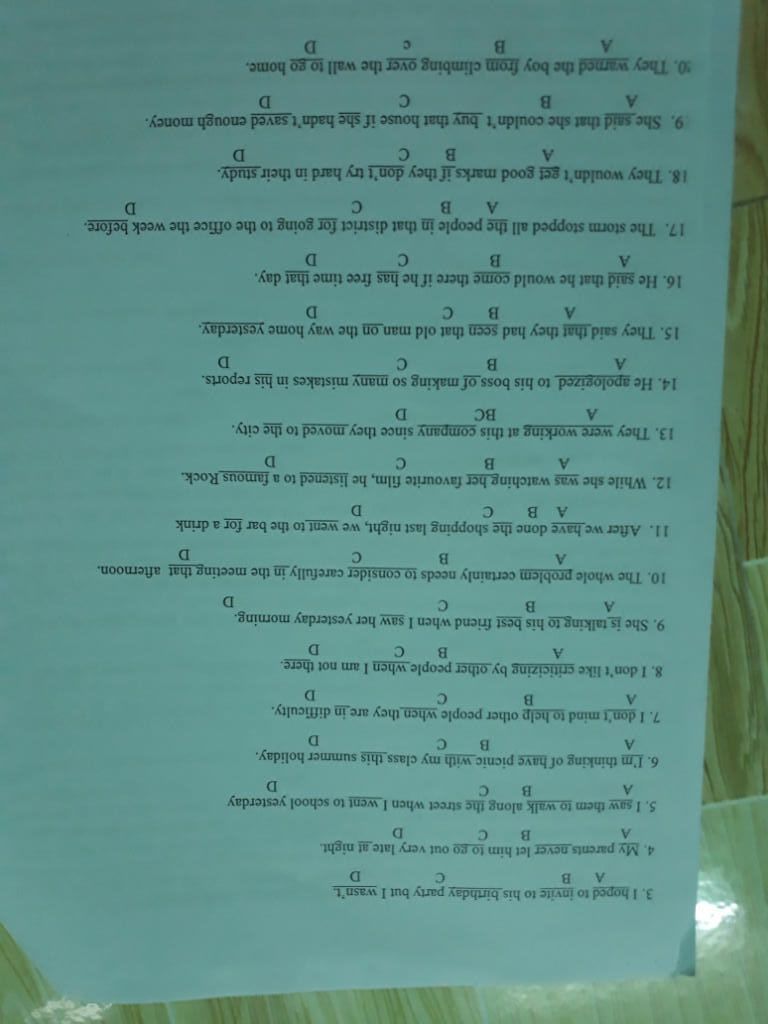 3. I hoped to invite to his birthday party but I wasn't.
A B C D
4. My parents never let him to go out very late at night.
A B C D
5. I saw them to walk along the street when I went to school yesterday
A B C D
6. I'm thinking of have picnic with my class this summer holiday.
A B C D
7. I don't mind to help other people when they are in difficulty.
A B C D
8. I don't like criticizing by other people when I am not there.
A B C D
9. She is talking to his best friend when I saw her yesterday morning.
A B C D
10. The whole problem certainly needs to consider carefully in the meeting that afternoon.
A B C D
11. After we have done the shopping last night, we went to the bar for a drink
A B C D
12. While she was watching her favourite film, he listened to a famous Rock.
A B C D
13. They were working at this company since they moved to the city.
A BC D
14. He apologized to his boss of making so many mistakes in his reports.
A B C D
15. They said that they had seen that old man on the way home yesterday.
A B C D
16. He said that he would come there if he has free time that day.
A B C D
17. The storm stopped all the people in that district for going to the office the week before.
A B C D
18. They wouldn't get good marks if they don't try hard in their study.
A B C D
9. She said that she couldn't buy that house if she hadn't saved enough money.
A B C D
0. They warned the boy from climbing over the wall to go home.
A B c D